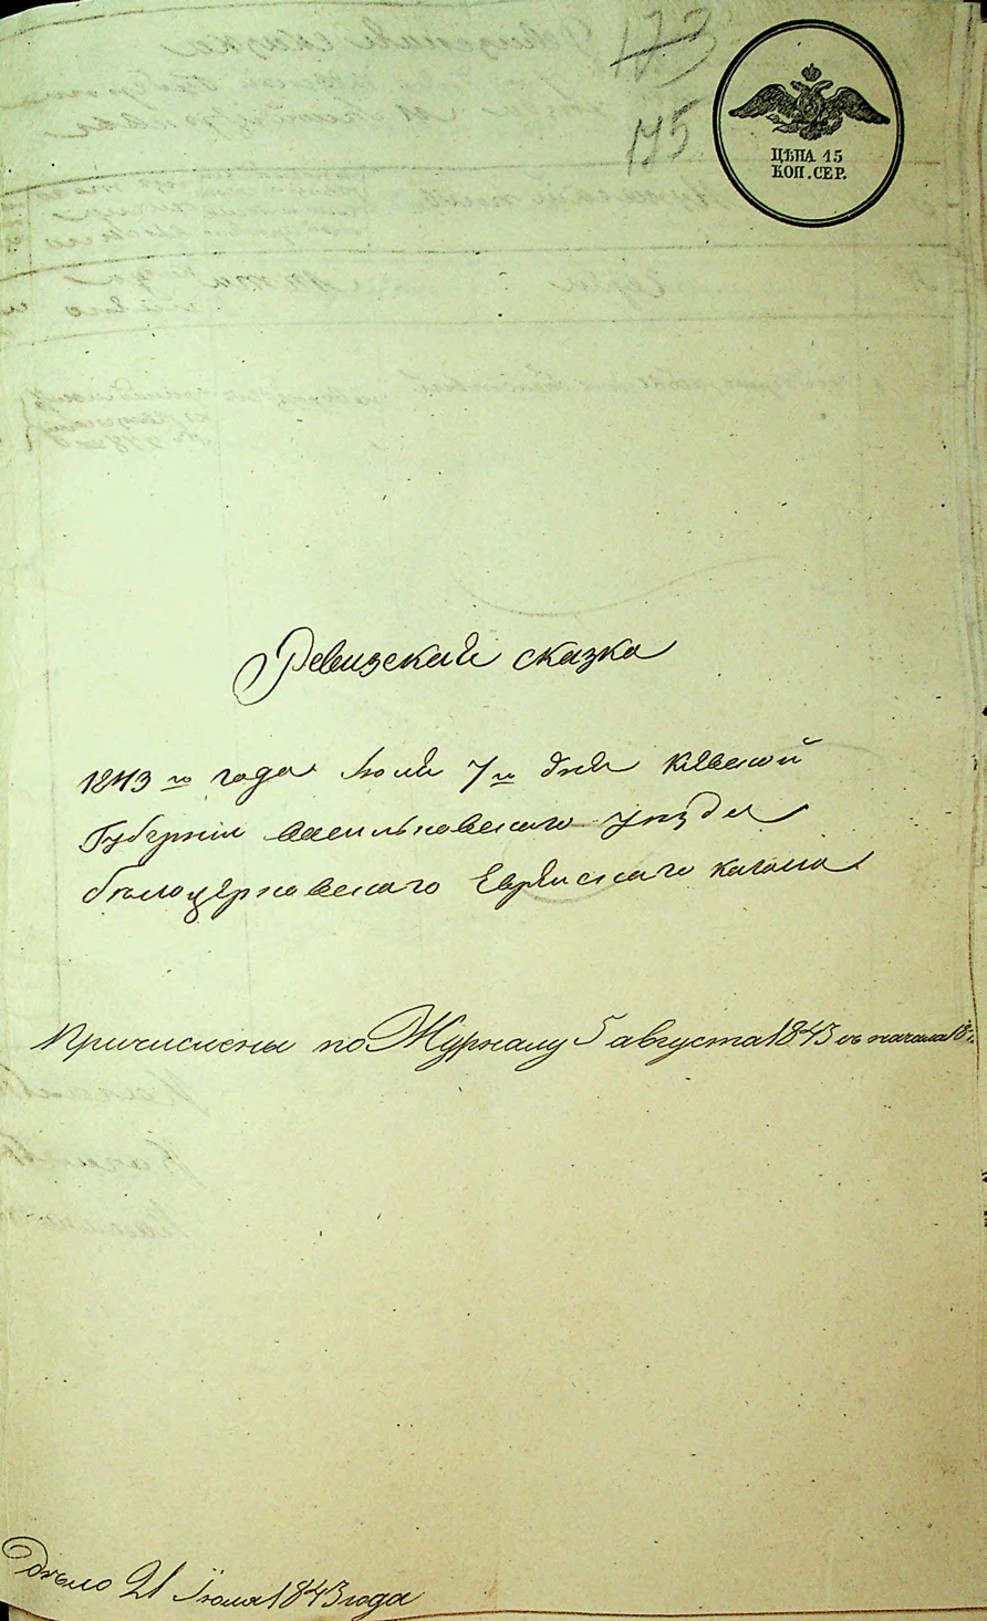 173
175
ЦѢНА 15
КОП. СЕР.
Ревизская сказка
1843 го года Июля 7 го дня Киевской
Губернии Васильковского уезда
белоцерковского Еврейского кагала
Причислены по Журналу 5 августа 1843 съ начала 18
дѣло 21 Июля 1843 года